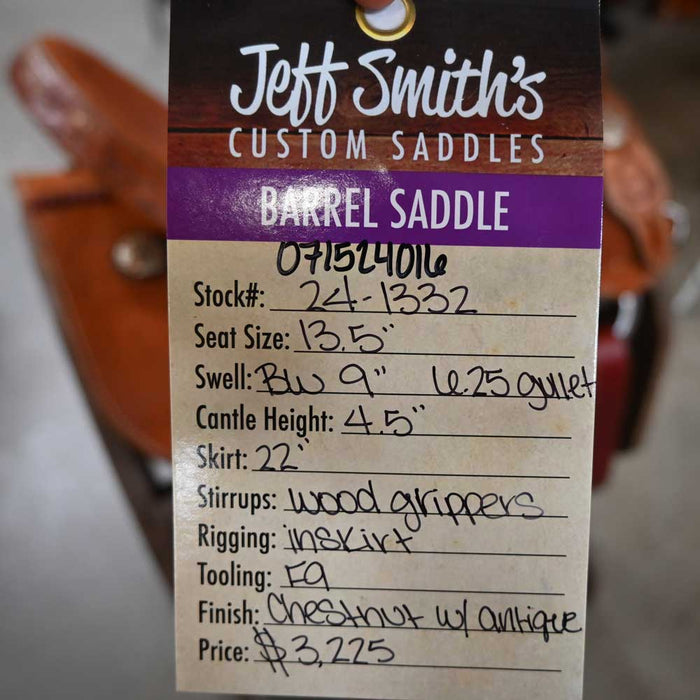 Jeff Smith's
CUSTOM SADDLES
BARREL SADDLE
071524016
Stock#: 24-1332
Seat Size: 13.5"
Swell: BW 9" 6.25 gullet
Cantle Height: 4.5"
Skirt: 22"
Stirrups: wood grippers
Rigging: inskirt
Tooling: F9
Finish: Chestnut w/ antique
Price: $3,225